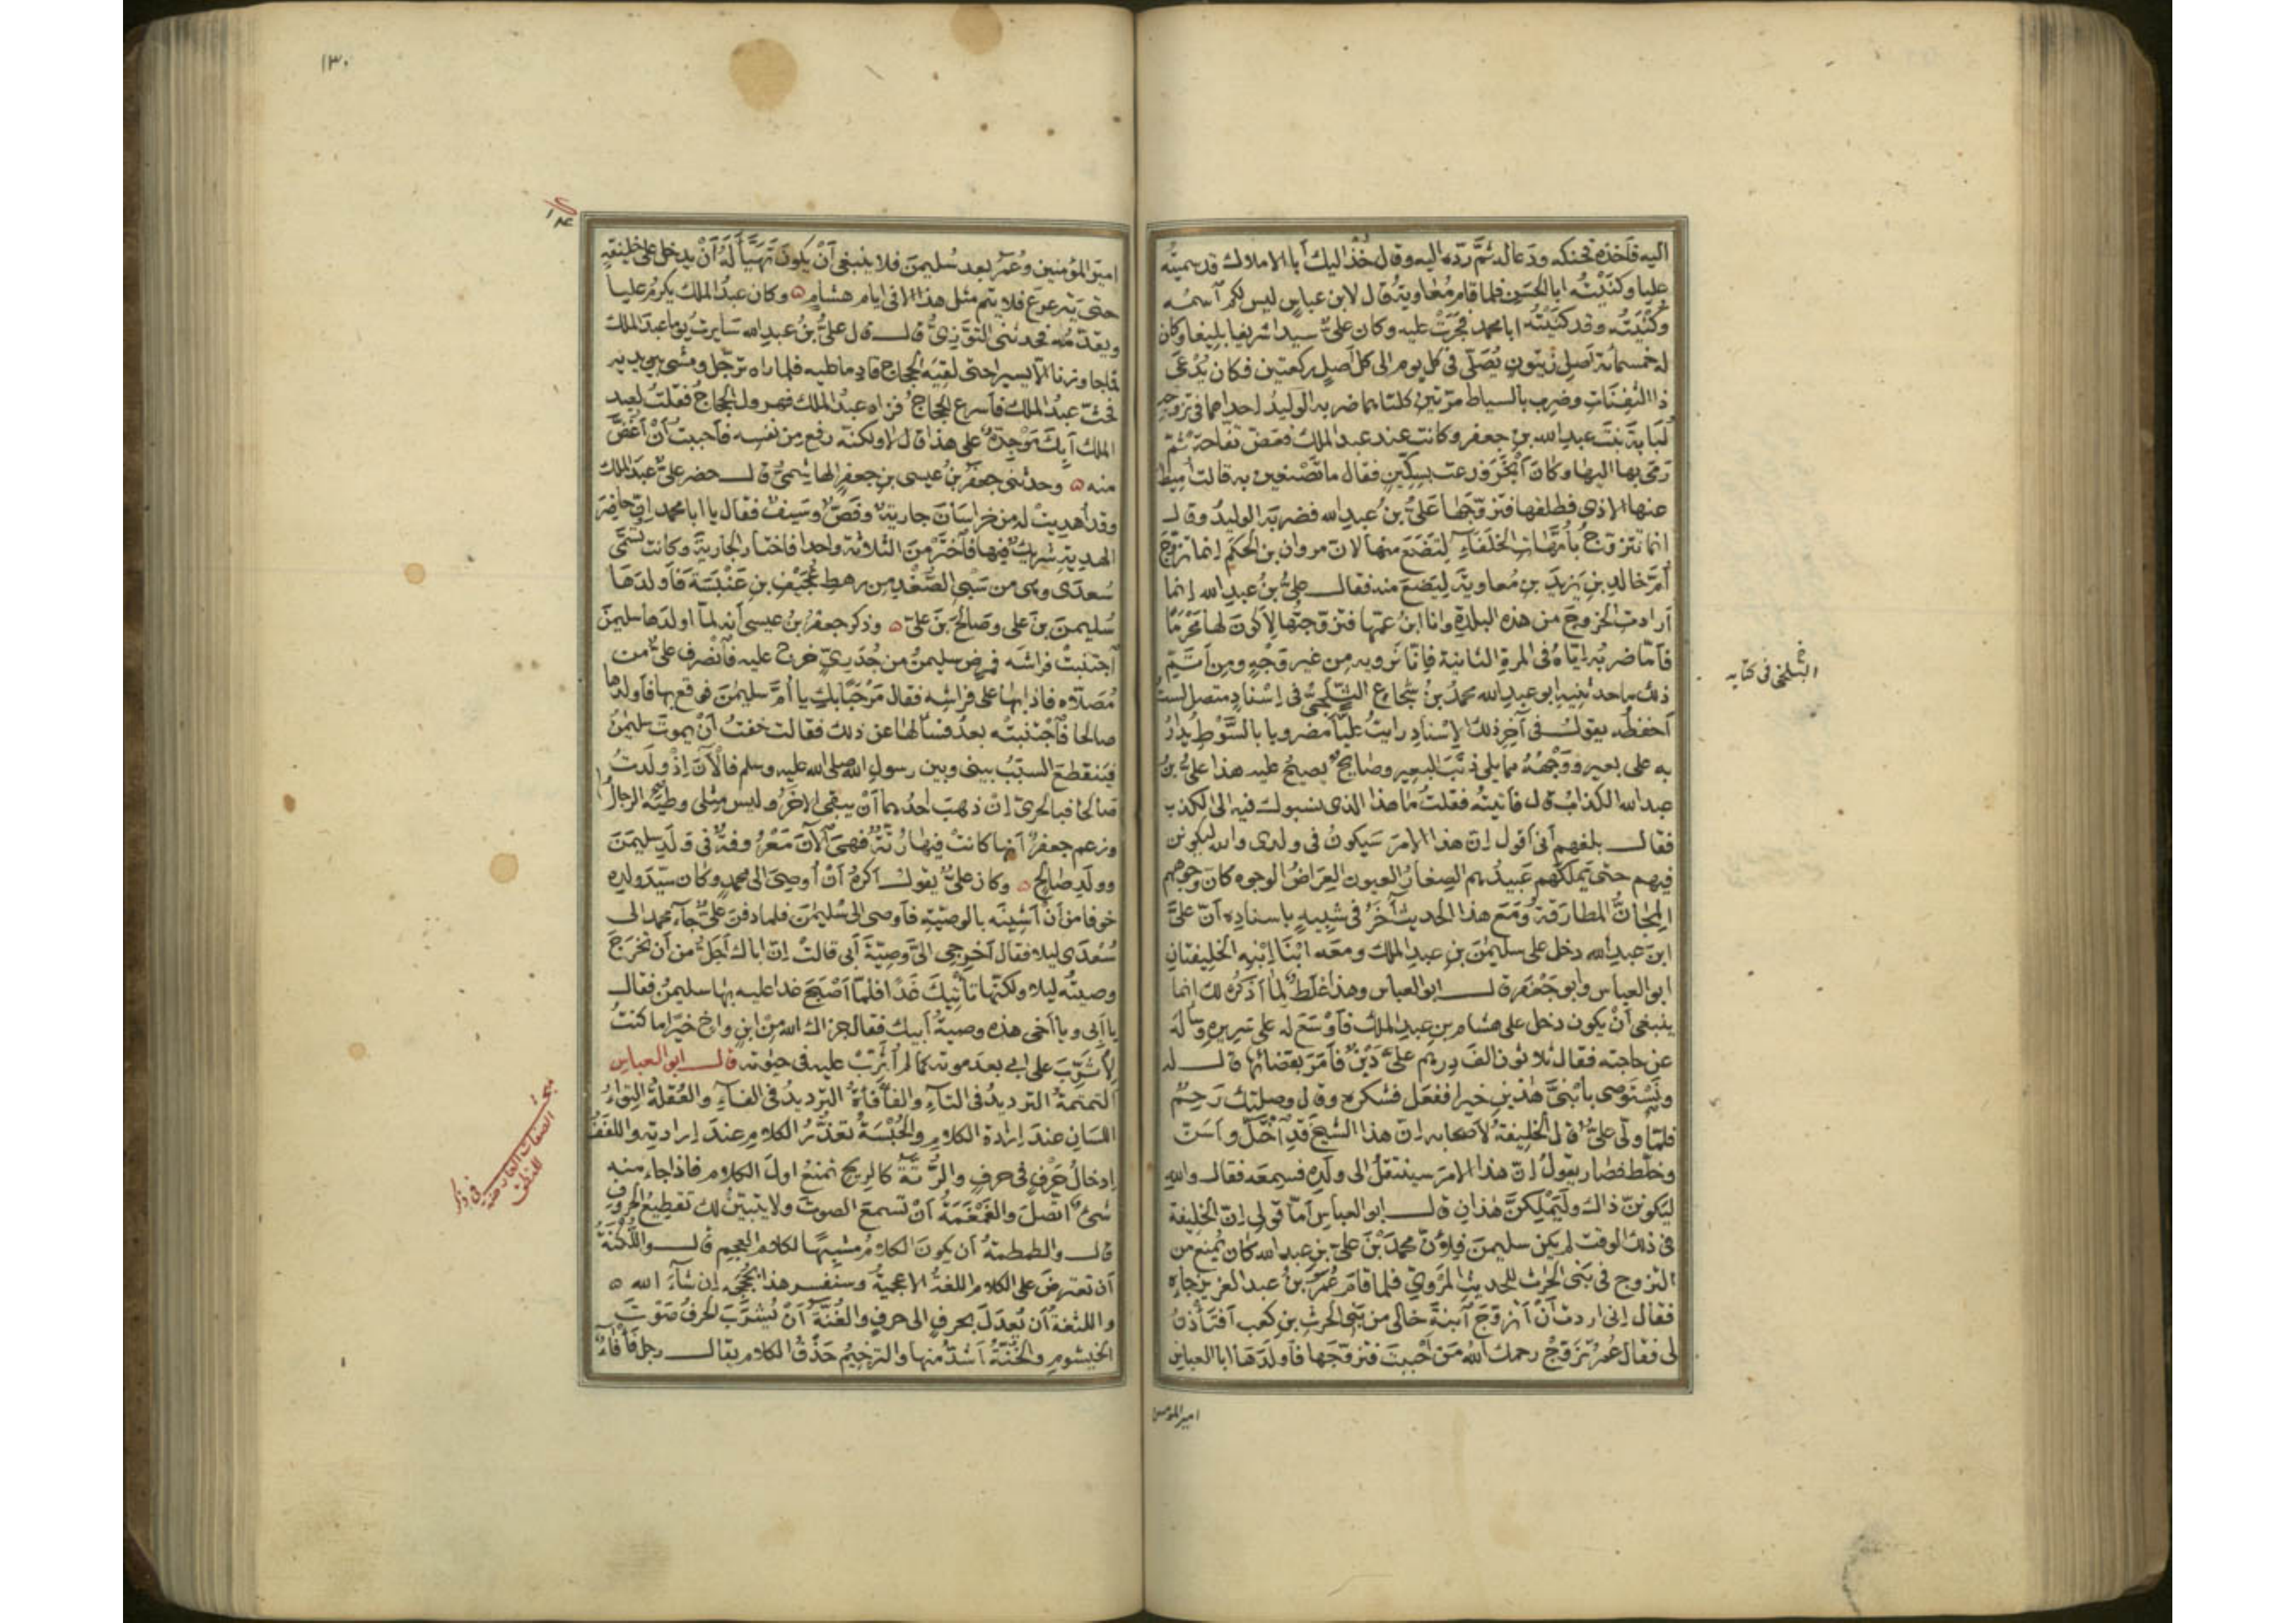 اليه فَاَخذه فحنكه ودَعا له ثمَّ ردّه اليه وقال خُذ اليك أبا الاملاك قد سميتُه
عليا وكَنَّيْتُه ابا الحَسَنِ فلما قام مُعاوية قال لابن عباسٍ ليس لكم اسمُه
وكُنْيَتُه وقد كَنَّيْتُه ابا محمد فجَرَتْ عليه وكان علىٌّ سيدا شريفا بليغا وكان
له خمسمائة اَصلِ زيتونٍ يُصَلّى فى كلّ يومٍ الى كل اَصلٍ ركعتين فكان يُدْعَى
ذا الثَّفِنَاتِ وضُرِبَ بالسياط مرّتين كلتاهما ضربه الوليدُ احداهما فى تزوجه
لُبَابَةَ بنتَ عبدِ الله بن جعفر وكانت عند عبد الملك فعَضّ تفاحةً ثمّ
رَمَى بها اليها وكان اَبْخَرَ فدعت بسِكّينٍ فقال ما تَصْنعين به قالت اُمِيطُ
عنها الاذى فطلقها فتزوّجها عَلِىُّ بنُ عبدِ الله فضربه الوليدُ وقال
انما تتزوّجُ بأمّهاتِ الخلفاءِ لِتَضَعَ منها لانّ مروان بن الحكَم انما تزوّجَ
اُمَّ خالدِ بنِ يزيدَ بنِ مُعاوية لِيَضَعَ منه فقال علىُّ بنُ عبدِ الله انما
اَرادتِ الخروجَ من هذه البلدةِ وانا ابنُ عمّها فتزوّجتُها لِاَكونَ لها مَحْرَمًا
فاَمّا ضربُه اِيّاهُ فى المرةِ الثانية فانّا نَروِيه مِن غير وَجْهٍ ومِن اَتَمِّ
ذلك ما حدثنيه ابو عبد الله محمدُ بنُ شُجاعٍ الثَّلْجىُّ فى اِسْنادٍ متصلٍ لستُ
اَحفظُه يقول فى آخِرِ ذلك الاِسْنادِ رايتُ عليًّا مضروبا بالسَّوْطِ يُدارُ
به على بعيرٍ ووَجْهُهُ مما يلى ذَنَبَ البعيرِ وصائحٌ يصيحُ عليه هذا علىُّ بنُ
عبد الله الكذابُ قال فاَتيتُه فقلتُ ما هذا الذى نسبوك فيه الى الكذب
فقال بلغهم اَنّى اَقول اِنّ هذا الامرَ سَيكونُ فى ولدى والله ليكونن
فيهم حتى يملكهم عَبيدُهم الصِغارُ العيونِ العِراضُ الوجوه كان وجوههم
المَجَانُّ المُطارَقة ومَعَ هذا الحديث آخَرُ فى شبيهٍ باِسنادِه اَنّ علىَّ
ابنَ عبدِ الله دخل على سليمانَ بنِ عبدِ الملك ومعَه ابْنا اِبْنِه الخليفتانِ
ابو العباس وابو جَعْفر قال ابو العباس وهذا غَلَطٌ لما اَذكرُه لك انما
ينبغى اَنْ يكون دخل على هشامِ بن عبدِ الملك فاَوسَعَ له على سريرِه وساَله
عن حاجته فقال ثلاثون الفَ دِرهمٍ علىَّ دَيْنٌ فاَمَرَ بقضائها قال له
وتَسْتَوصى بابْنَىَّ هٰذين خيرا ففعَلَ فشكره وقال وصلتك رَحِمٌ
فلمّا ولّى علىٌّ قال الخليفةُ لاَصحابه اِنّ هذا الشيخَ قد اختَلّ واَسَنّ
وخلّط فصار يقولُ اِنّ هذا الامرَ سينتقلُ الى ولَدِه فسمِعَه فقال والله
ليَكونَنّ ذاك ولَيَمْلِكنَّ هذانِ قال ابو العباسِ اَمّا قولى اِنّ الخليفةَ
فى ذلك الوقتِ لم يكن سليمنَ فلِاَنّ محمدَ بْنَ علىِّ بنِ عبد الله كان يُمنَع من
التزوج فى بَنى الحٰرث للحديثِ المَروىّ فلما قامَ عُمَرُ بنُ عبد العزيز جاءه
فقال اِنى اردتُ اَنْ اَتزوّجَ ابنةَ خالى من بنى الحرث بنِ كعب اَفتَأْذنُ
لى فقال عُمرُ تَزَوَّجْ رحمك الله مَن اَحْببتَ فتزوّجَها فاَولَدَها ابا العباس
الثلجى فى كتابه
امير المؤمنين
١٣٠
١٣٤
امير المؤمنين وعُمَرُ بعد سُليمنَ فلا ينبغى اَنْ يكونَ تَهَيَّأَ لَهُ اَنْ يدخل على خليفةٍ
حتى يترعرعَ فلا يتم مثل هذا الا فى ايام هشامٍ ٥ وكان عبدُ الملك يكرِمُ عليا
ويقدّمُه فحدثنى التَّوَّزِىُّ قال قال علىُّ بنُ عبدِ الله سَايرتُ يوما عبدَ الملك
فما جاوزنا الا يسيرا حتى لقيَه الحجاج قادِما عليه فلما راه ترجّل ومشى بين يديه
فحثّ عبدُ الملك فاَسرع الحجاجُ فزاد عبدُ الملك فهرول الحجاجُ فقلتُ لعبد
الملك اَبِكَ مَوْجِدةٌ على هذا قال لا ولكنه رفع من نفسه فاَحببتُ اَنْ اَغُضَّ
منه ٥ وحدثنى جعفرُ بنُ عيسى بنِ جعفرٍ الهاشمىُّ قال حضر علىٌّ عبدَ الملك
وقد اُهديتْ له من خراسانَ جاريةٌ وفَصٌّ وسَيفٌ فقال يا ابا محمد اِنّ حاضِرَ
الهديةِ شريكٌ فيها فاَختَرْ مِنَ الثلاثة واحدا فاختار الجاريةَ وكانت تُسمَّى
سُعدَى وهى من سَبْىِ الصُّغْدِ من رهطِ عُجَيْفِ بنِ عَنْبَسَةَ فاَولدَها
سُليمنَ بنَ على وصالحَ بْنَ علىّ ٥ وذكر جعفرُ بنُ عيسى اَنه لمّا اولدها سليمنَ
اجتنبتْ فراشَه فمرِض سليمنُ من جُدَرِىٍّ خرج عليه فاَنْصرف علىٌّ من
مُصَلّاه فاذا بها على فراشِه فقال مَرْحَبًا بكِ يا اُمَّ سليمٰنَ فوقع بها فاَولدها
صالحا فاَجْتنبتْه بعدُ فسألها عن ذلك فقالت خفتُ اَنْ يموتَ سليمٰنُ
فيَنقطعَ السببُ بينى وبين رسولِ الله صلى الله عليه وسلم فالْآنَ اِذْ ولَدتُ
صالحًا فبالحرىّ اِنْ ذهبَ احدُهما اَنْ يبقى الاخَرُ وليس مِثلى وطِئَه الرجالُ
وزعم جعفرٌ اَنها كانتْ فيها رُتّةٌ فهىَ الآنَ مَعْرُوفةٌ فى ولدِ سليمنَ
وولَدِ صالحٍ ٥ وكان علىٌّ يقول اَكرَهُ اَنْ اُوصِىَ الى محمدٍ وكان سيّدَ ولدِه
خوفا من اَنْ اَشينَه بالوصيّةِ فاَوصى الى سُليمٰنَ فلما دفنَ علىٌّ جاءَ محمد الى
سُعْدَى ليلا فقال اَخرجى الىَّ وصيّةَ اَبى قالتْ اِنّ اباك اَجَلُّ من اَن تخرَجَ
وصيتُه ليلا ولكنّها تأْتيكَ غَدًا فلمّا اَصْبحَ غدا عليه بها سليمنُ فقال
يا اَبى ويا اَخى هذه وصيةُ اَبيك فقال جزاك اللهُ من ابنٍ واخٍ خيرًا ما كنتُ
لِاُثَرِّبَ على ابى بعدَ موته كما لم اُثَرِّبْ عليه فى حيوته قال ابو العباس
التمتمةُ الترديدُ فى التاءِ والفأْفأةُ الترديدُ فى الفاءِ والعُقلةُ التِواءُ
اللسانِ عندَ اِرادةِ الكلامِ والحُبْسَةُ تعذّرُ الكلامِ عندَ اِرادته واللففُ
اِدخالُ حرْفٍ فى حرفٍ والرُّتّةُ كالريح تمنعُ اولَ الكلامِ فاذا جاء منه
شىءٌ اتّصلَ والغَمْغَمَةُ اَنْ تسمعَ الصوتَ ولا يتبيّنُ لك تقطيعُ الحروفِ
قال والطمطمةُ اَن يكونَ الكلامُ مشبِهًا لكلامِ العجمِ قال واللُّكنةُ
اَن تعترضَ على الكلامِ اللغةُ الاعجميةُ وسنفسر هذا بحُجَجِه اِن شاءَ الله ٥
واللثغةُ اَن يُعدَلَ بحرفٍ الى حرفٍ والغُنَّةُ اَنْ يُشرَّبَ الحرفُ صَوْتَ
الخيشومِ والخُنّةُ اَشدُّ منها والترخيمُ حَذْفُ الكلام يقال رجل فَأْفاءٌ
فى ذكر
الصفات العارضة
للنطق